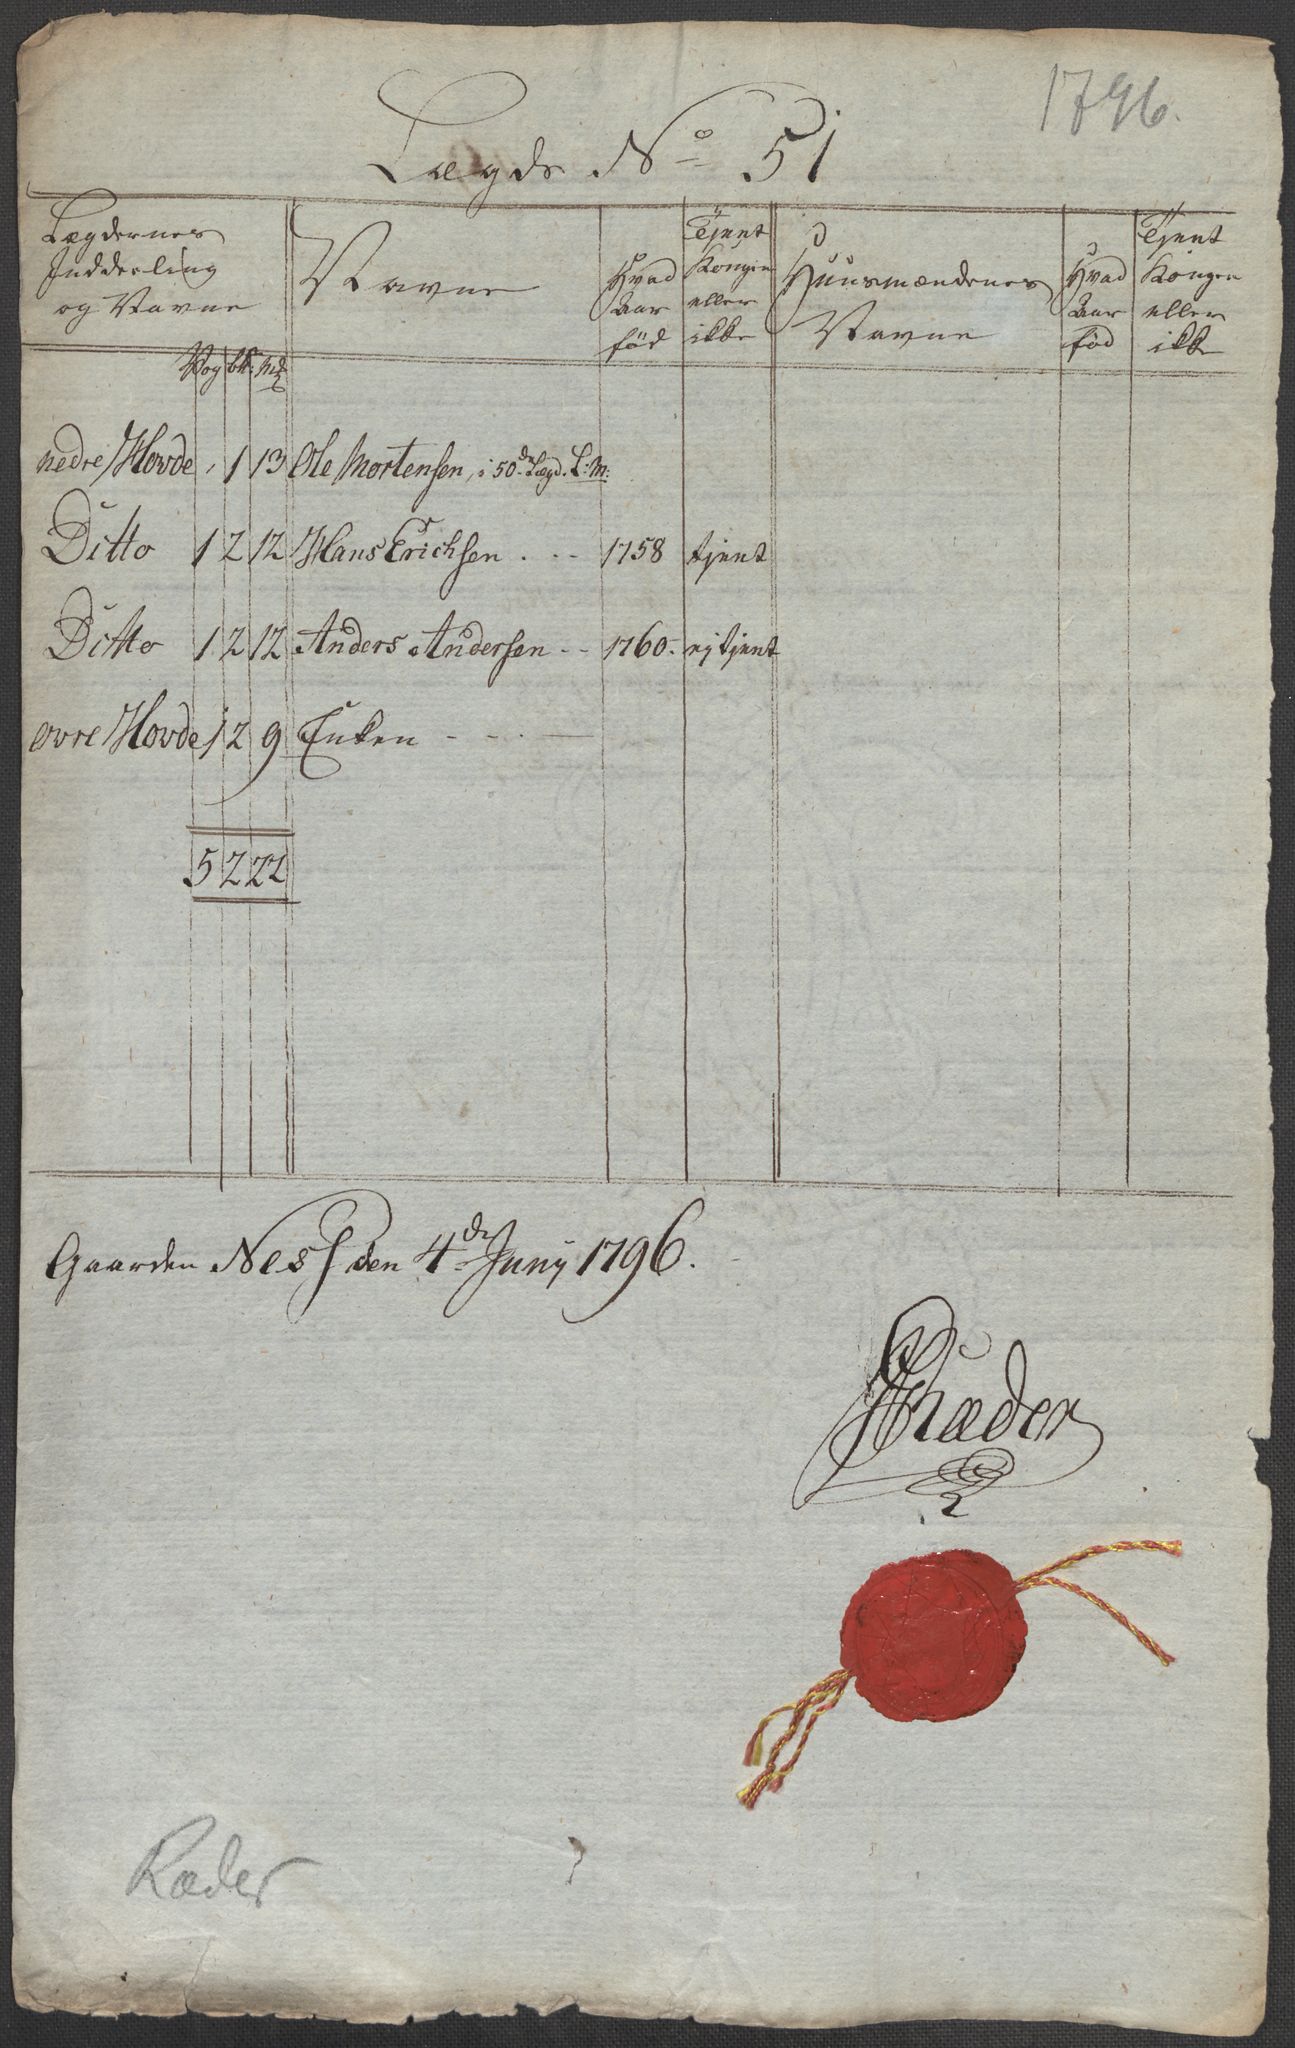 1796.
Lægds No 51
Lægdernes Inddeeling og Navne | Navne | Hvad Aar fød | Tjent Kongen eller ikke | Huusmændenes Navne | Hvad Aar fød | Tjent Kongen eller ikke
Vog bℓ: M
nedre Hovde , 1 13 Ole Mortensen, i 50de Lægd. L: M:
Ditto 1 2 12 Hans Erichsen . - - 1758 tjent
Ditto 1 2 12 Anders Andersen - - 1760. ej tjent
øvre Hovde 1 2 9 Enken - - - —
5 2 22
Gaarden Ness den 4de Junij 1796.
Ræder
Ræder